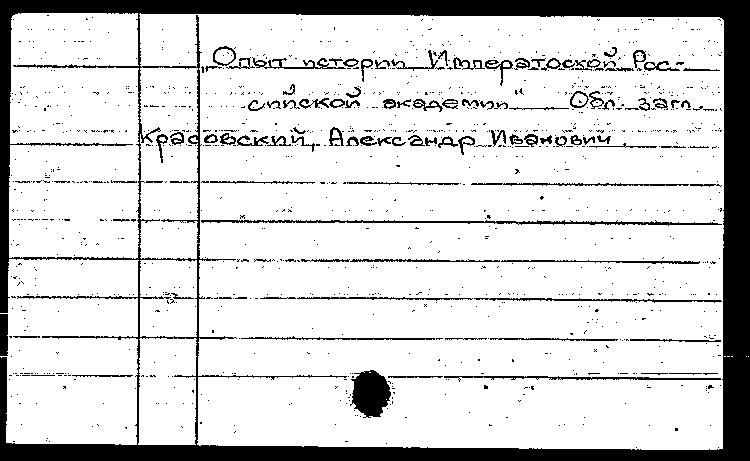 „Опыт истории Императоской Рос-
сийской академии“ Обл. загл.
Красовский, Александр Иванович.